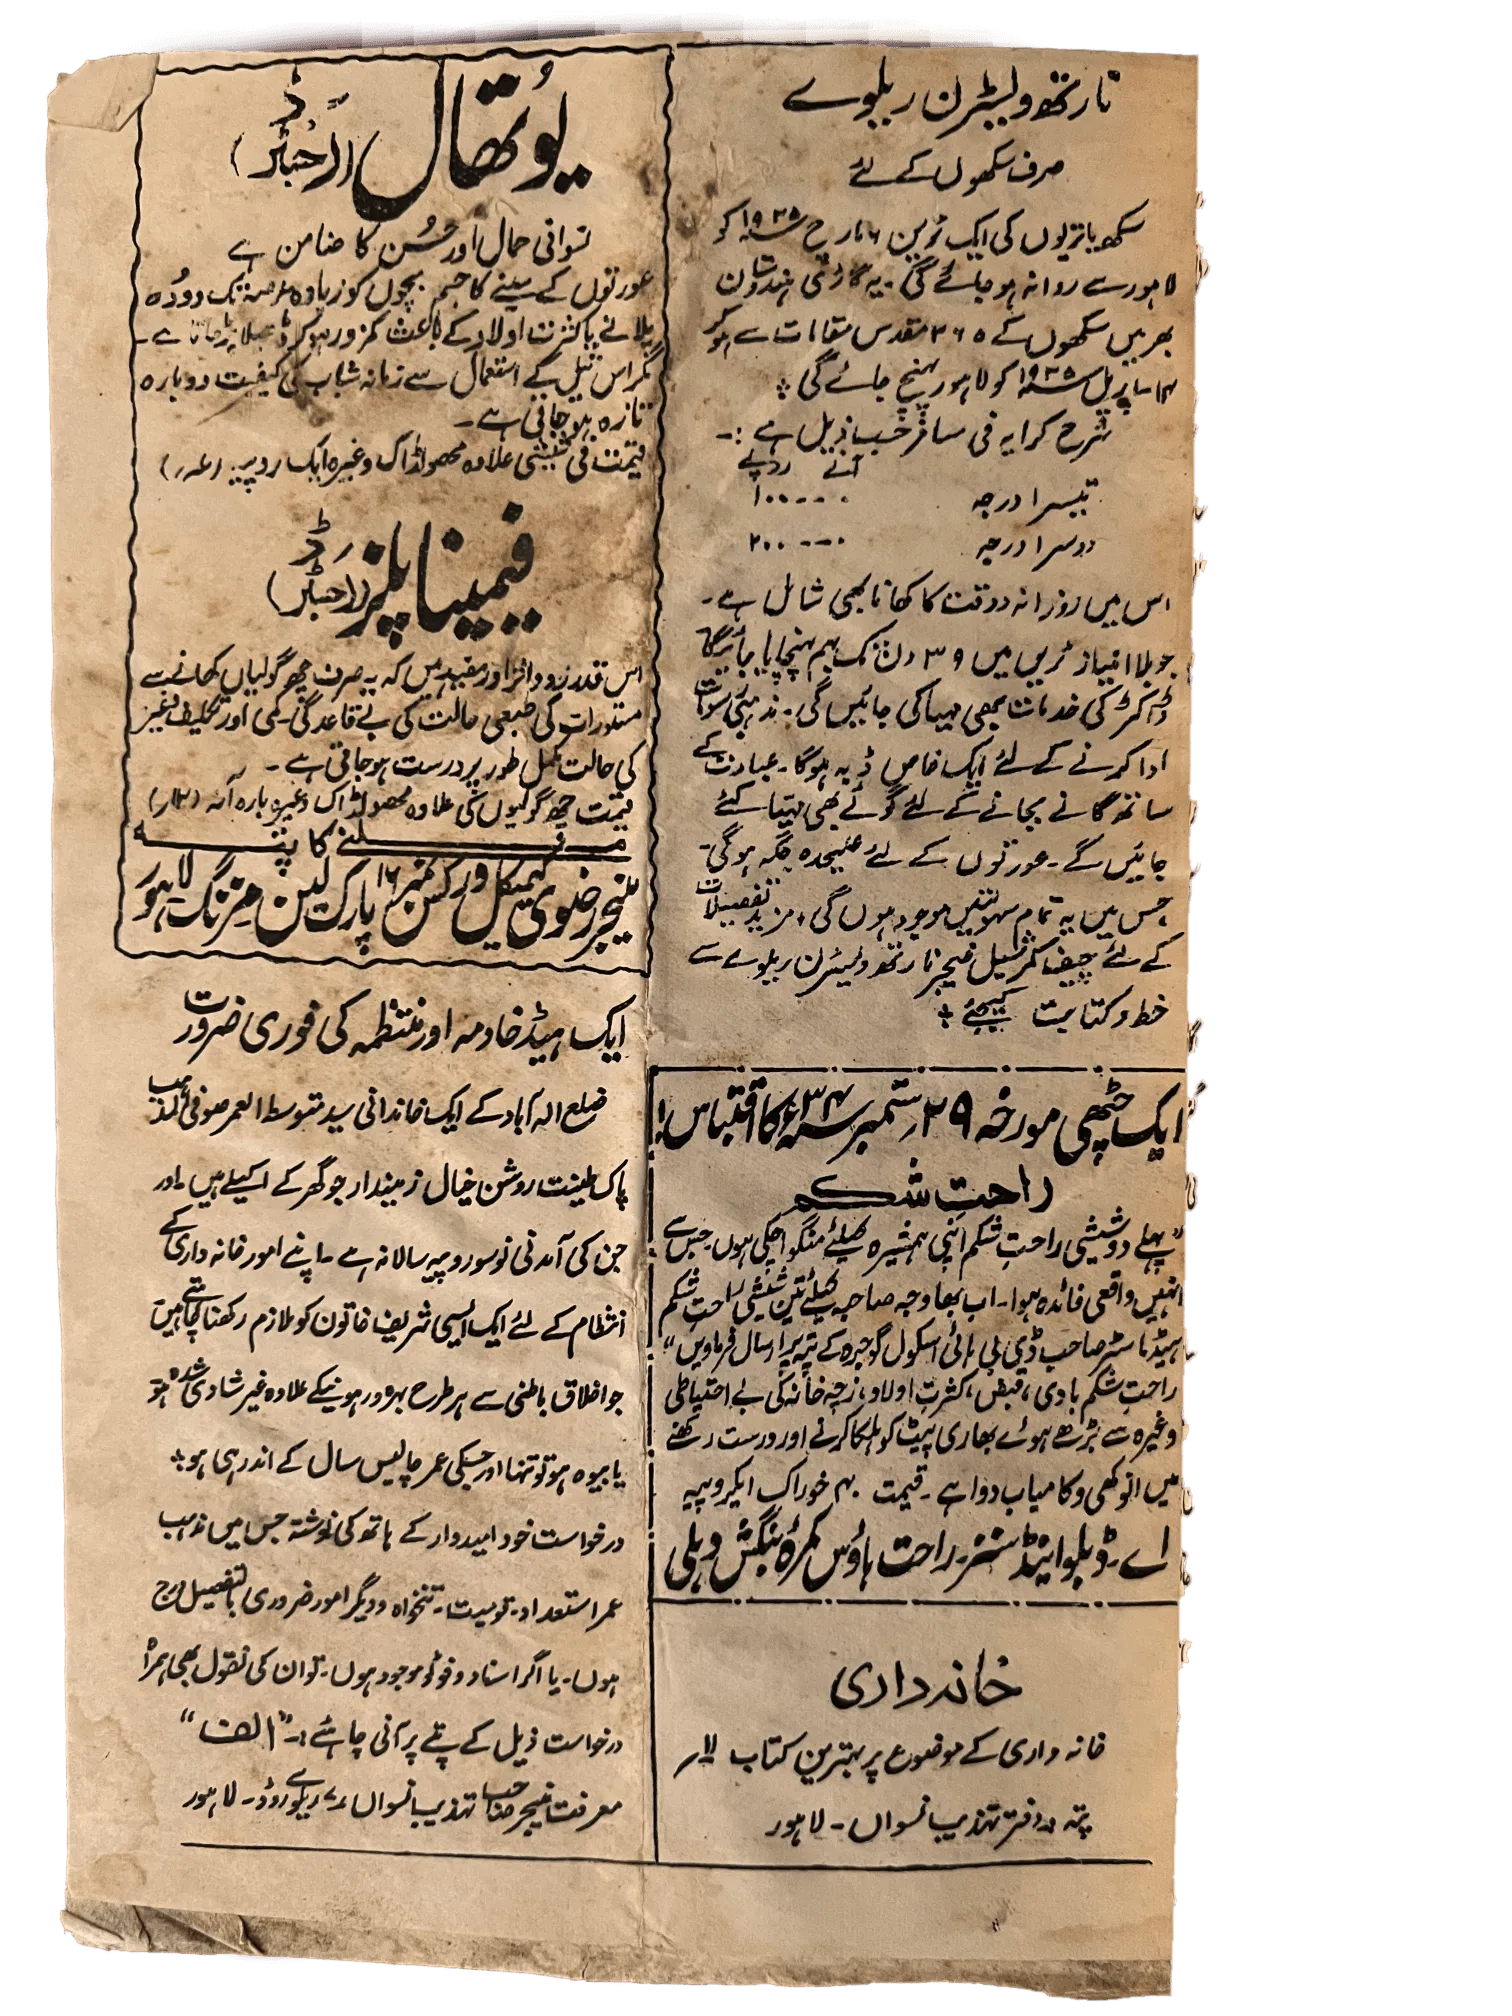 نارتھ ویسٹرن ریلوے
صرف سکھوں کے لئے
سکھ یاتریوں کی ایک ٹرین ۶ مارچ ۱۹۳۵ء کو
لاہور سے روانہ ہو جائے گی۔ یہ گاڑی ہندوستان
بھر میں سکھوں کے ۳۶۵ مقدس مقامات سے ہو کر
۱۴۔ اپریل ۱۹۳۵ء کو لاہور پہنچ جائے گی ؞
شرح کرایہ فی مسافر حسب ذیل ہے :۔
آنے روپے
تیسرا درجہ ۰ ۔۔۔ ۱۰۰
دوسرا درجہ ۰ ۔۔۔ ۲۰۰
اس میں روزانہ دو وقت کا کھانا بھی شامل ہے۔
جو بلا امتیاز ٹرین میں ۳۹ دن تک بہم پہنچایا جائیگا
ڈاکٹر کی خدمات بھی مہیا کی جائیں گی۔ مذہبی رسومات
ادا کرنے کے لئے ایک خاص ڈبہ ہوگا۔ عبادت کے
ساتھ گانے بجانے کے لئے گوئے بھی مہیا کئے
جائیں گے۔ عورتوں کے لئے علیحدہ جگہ ہوگی۔
جس میں یہ تمام سہولتیں موجود ہوں گی، مزید تفصیلات
کے لئے چیف کمرشیل منیجر نارتھ ویسٹرن ریلوے سے
خط و کتابت کیجئے ؞
ایک چٹھی مورخہ ۲۹ ستمبر ۳۴ء کا اقتباس!
راحتِ شکم
"پہلے دو شیشی راحتِ شکم اپنی ہمشیرہ کیلئے منگوا چکی ہوں۔ جس سے
انہیں واقعی فائدہ ہوا۔ اب بھاوجہ صاحبہ کیلئے تین شیشی راحت شکم
ہیڈ ماسٹر صاحب ڈی بی ہائی اسکول گوجرہ کے پتہ پر ارسال فرماویں"
راحتِ شکم بادی، قبض، کثرتِ اولاد، زچہ خانہ کی بے احتیاطی
وغیرہ سے بڑھے ہوئے بھاری پیٹ کو ہلکا کرنے اور درست رکھنے
میں انوکھی و کامیاب دوا ہے۔ قیمت خوراک ایکروپیہ
اے۔ ڈبلیو اینڈ سنز۔ راحت ہاؤس کمرہ بنگش دہلی
خانہ داری
خانہ داری کے موضوع پر بہترین کتاب
پتہ :۔ دفتر تہذیب نسواں۔ لاہور
یُوتھال (رجسٹرڈ)
نسوانی جمال اور حُسن کا ضامن ہے
عورتوں کے سینے کا حجم بچوں کو زیادہ عرصہ تک دودھ
پلانے یا کثرت اولاد کے باعث کمزور ہو کر ڈھیلا پڑ جاتا ہے۔
مگر اس تیل کے استعمال سے زمانہ شباب کی کیفیت دوبارہ
تازہ ہو جاتی ہے۔
قیمت فی شیشی علاوہ محصولڈاک وغیرہ ایک روپیہ (عہ ر)
فیمینا پلز (رجسٹرڈ)
اس قدر زود اثر اور مفید ہیں کہ یہ صرف چھ گولیاں کھانے سے
مستورات کی طبعی حالت کی بے قاعدگی۔ کمی اور تکلیف وغیرہ
کی حالت مکمل طور پر درست ہو جاتی ہے۔
قیمت چھ گولیوں کی علاوہ محصولڈاک وغیرہ بارہ آنہ (۱۲ر)
ملنے کا پتہ
منیجر رضوی کیمیکل ورکس نمبر ۱۶ پارک لین مزنگ لاہور
ایک ہیڈ خادمہ اور منتظمہ کی فوری ضرورت
ضلع الہ آباد کے ایک خاندانی سید متوسط العمر صوفی المذہب
پاک طینت روشن خیال زمیندار جو گھر کے اکیلے ہیں۔ اور
جن کی آمدنی نو سو روپیہ سالانہ ہے۔ اپنے امور خانہ داری کے
انتظام کے لئے ایک ایسی شریف خاتون کو ملازم رکھنا چاہتے ہیں
جو اخلاق باطنی سے ہر طرح بہرہ ور ہونیکے علاوہ غیر شادی شدہ ہو
یا بیوہ ہو تو تنہا اور جسکی عمر چالیس سال کے اندر ہی ہو؞
درخواست خود امیدوار کے ہاتھ کی نوشتہ جس میں مذہب
عمر استعداد۔ قومیت۔ تنخواہ و دیگر امور ضروری بالتفصیل درج
ہوں۔ یا اگر اسناد و فوٹو موجود ہوں۔ تو ان کی نقول بھی ہمراہ
درخواست ذیل کے پتے پر آنی چاہئے :۔ "الف"
معرفت منیجر صاحب تہذیب نسواں ۷ ریلوے روڈ۔ لاہور